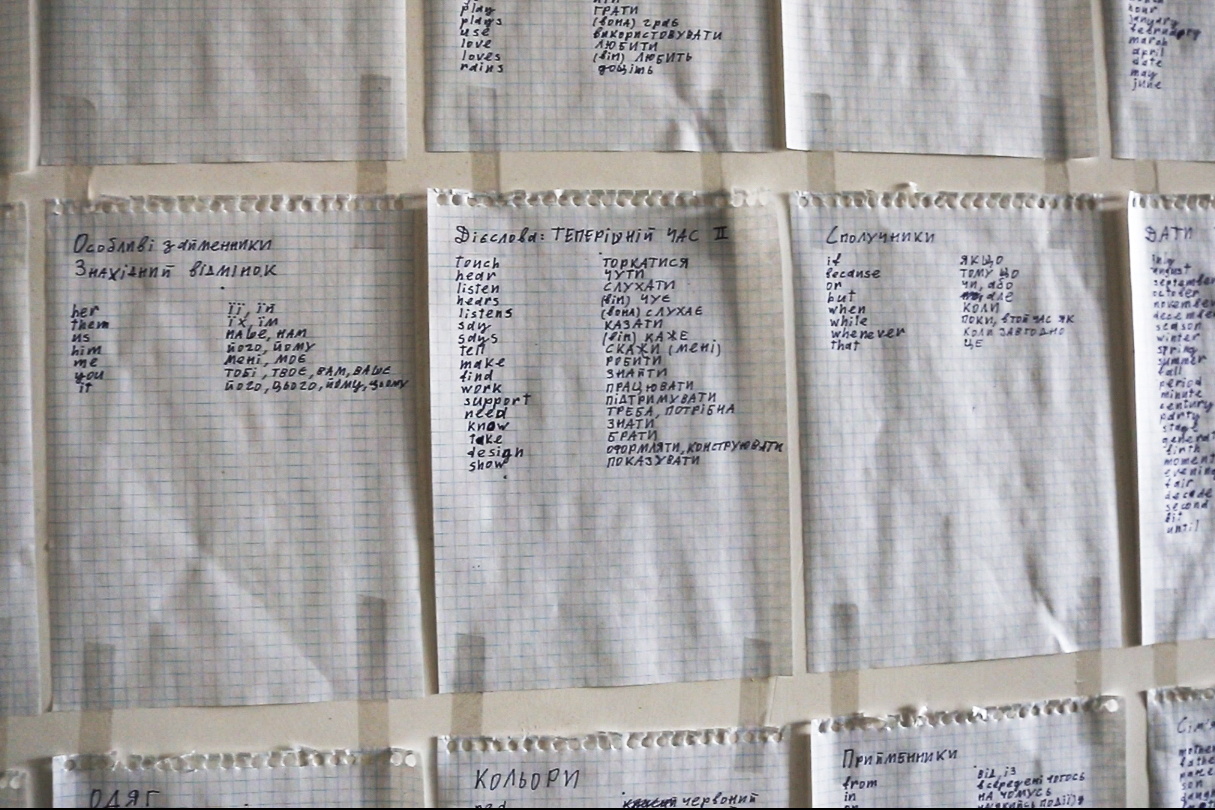 play ГРАТИ
plays (вона) грає
use використовувати
love ЛЮБИТИ
loves (він) ЛЮБИТЬ
rains дощить
hour
january
february
march
april
date
may
june
Особливі займенники
Знахідний відмінок
her її, їй
them їх, їм
us НАШЕ, НАМ
him його, йому
me мені, моє
you тобі, твоє, вам, ваше
it його, цього, йому, цьому
Дієслова: ТЕПЕРІШНІЙ ЧАС II
touch ТОРКАТИСЯ
hear ЧУТИ
listen СЛУХАТИ
hears (він) ЧУЄ
listens (вона) СЛУХАЄ
say КАЗАТИ
says (він) КАЖЕ
tell СКАЖИ (мені)
make РОБИТИ
find ЗНАЙТИ
work ПРАЦЮВАТИ
support ПІДТРИМУВАТИ
need ТРЕБА, ПОТРІБНА
know ЗНАТИ
take БРАТИ
design ОФОРМЛЯТИ, КОНСТРУЮВАТИ
show ПОКАЗУВАТИ
Сполучники
if ЯКЩО
because ТОМУ ЩО
or чи, або
but але
when КОЛИ
while ПОКИ, В ТОЙ ЧАС ЯК
whenever КОЛИ ЗАВГОДНО
that ЦЕ
ДАТИ
july
august
september
october
november
december
season
winter
spring
summer
fall
period
minute
century
party
stage
generat
birth
moment
evening
fair
decade
second
bit
until
ОДЯГ
КОЛЬОРИ
red червоний
Прийменники
from від, із
in всередині чогось
on НА ЧОМУСЬ
Сім'
mother
father
parent
son